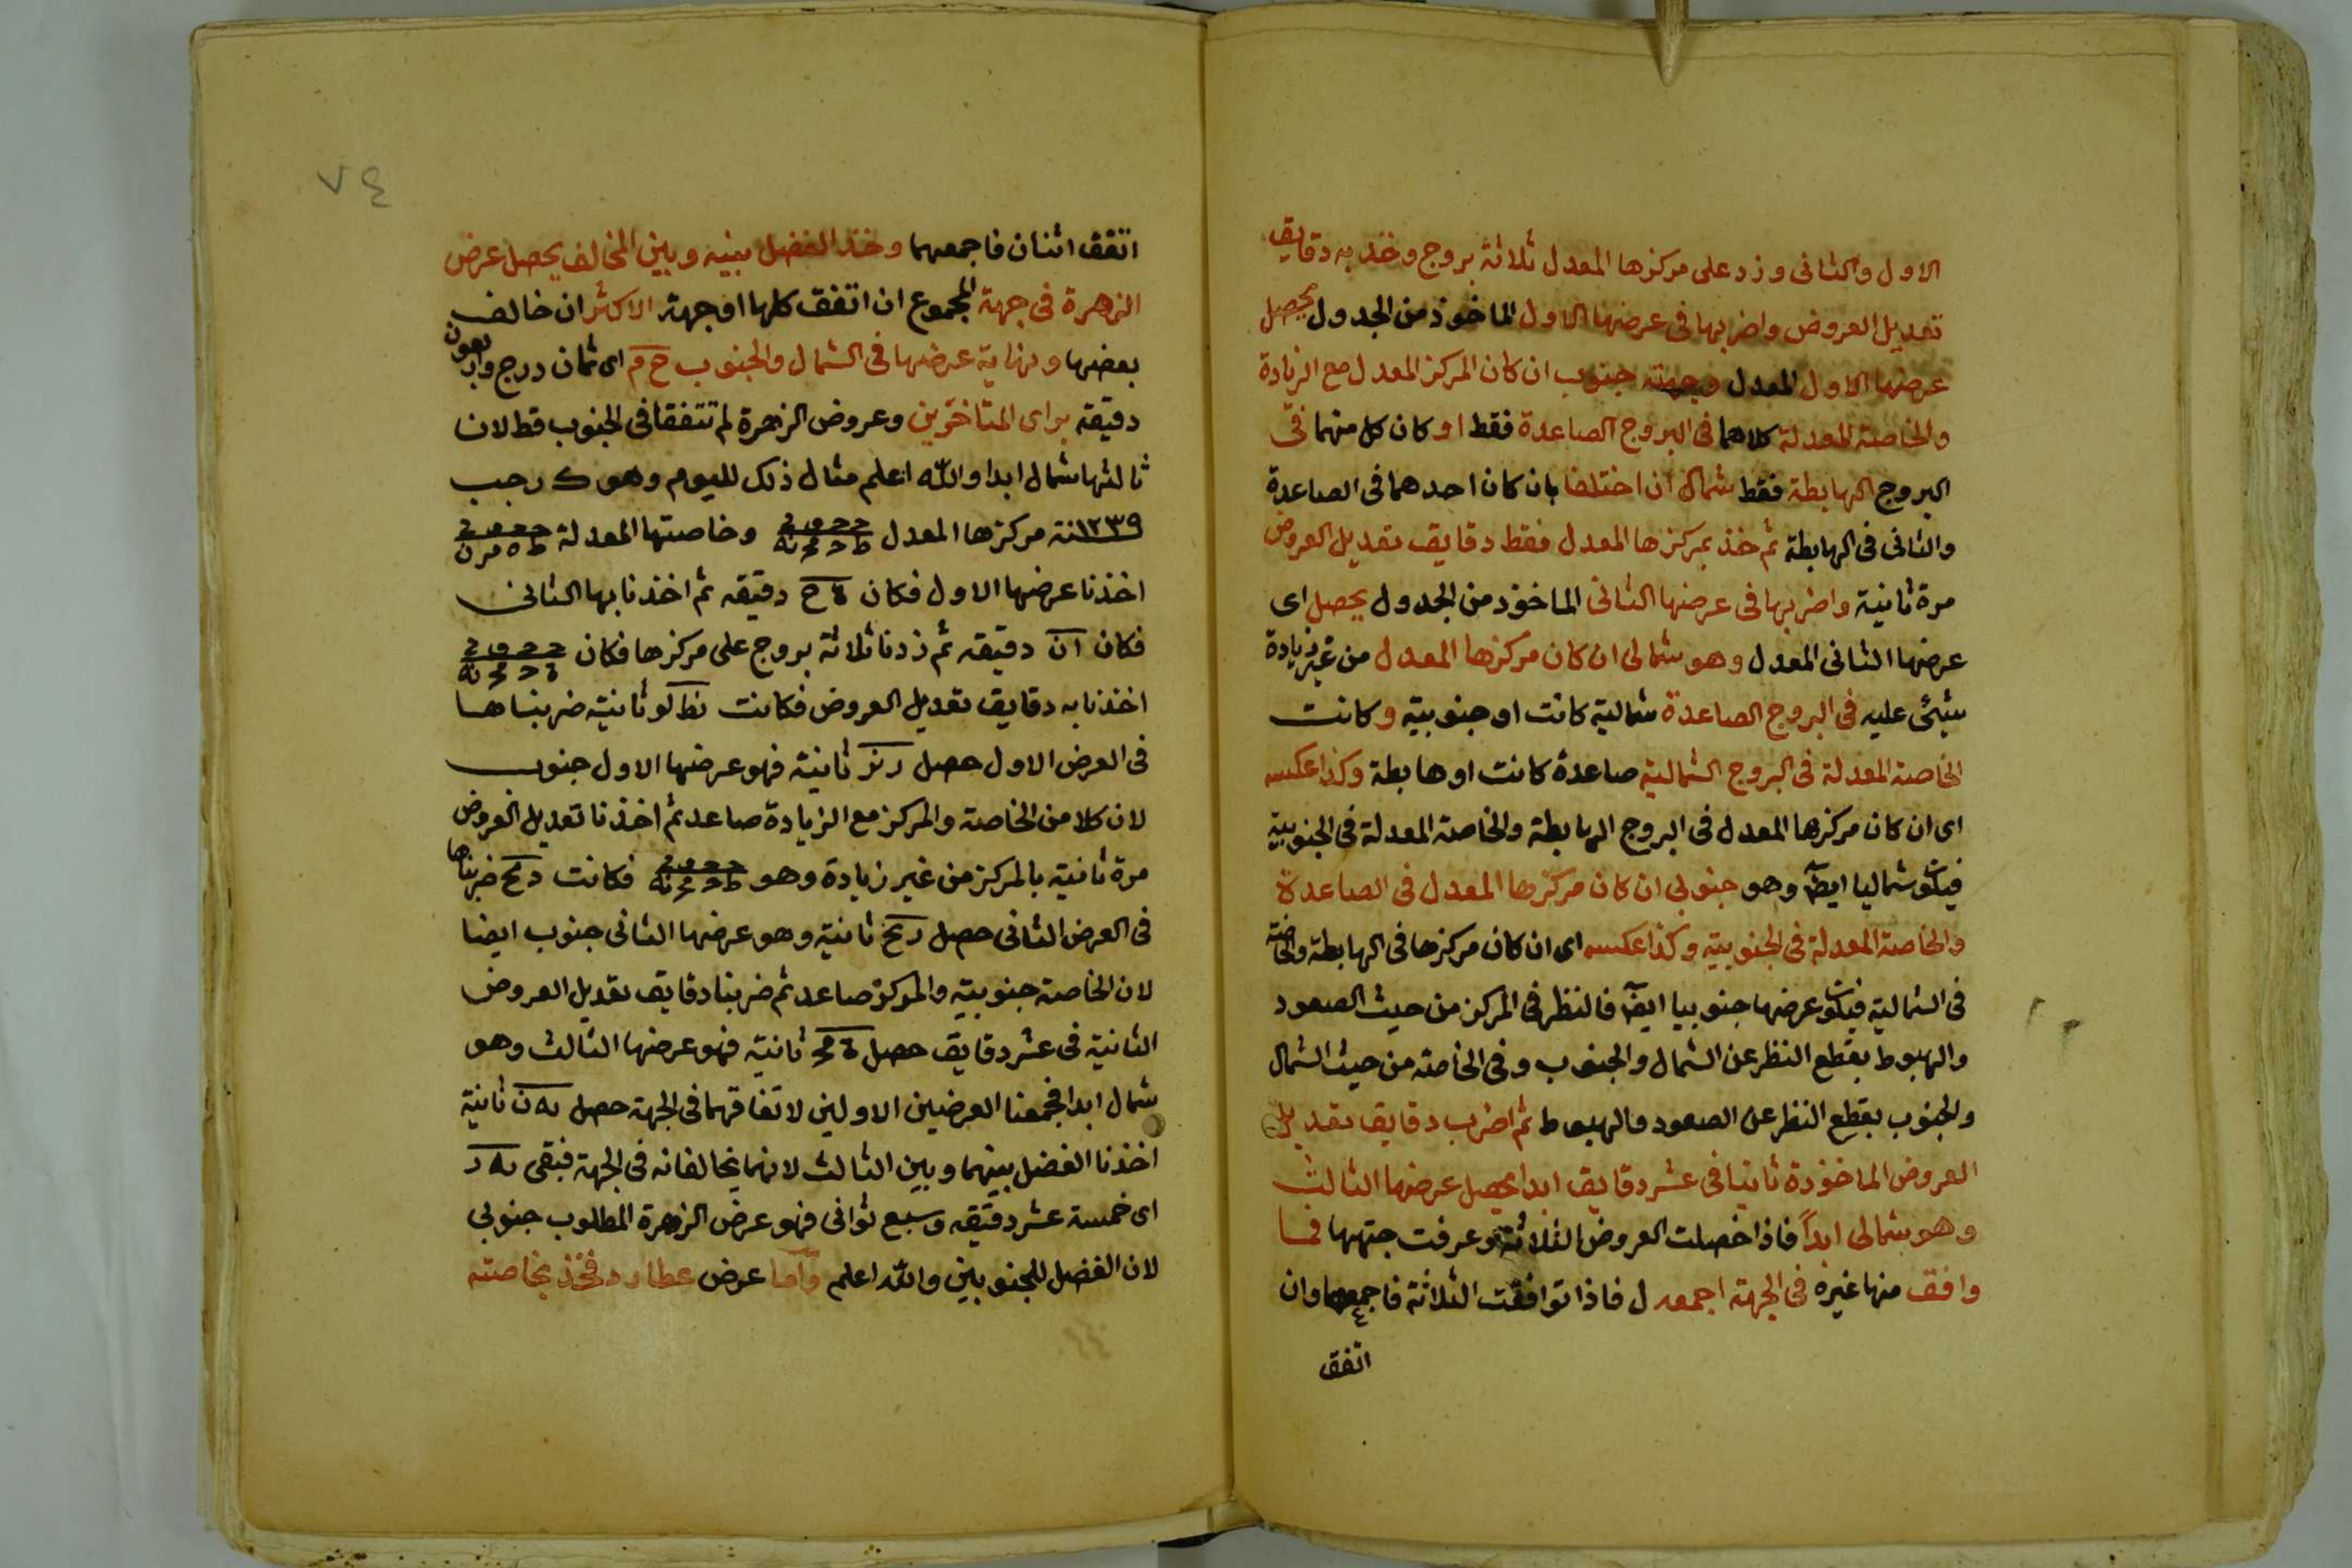 الاول والثانى وزد على مركزها المعدل ثلاثة بروج وخذ به دقايق
تعديل العروض واضربها فى عرضها الاول الماخوذ من الجدول يحصل
عرضها الاول المعدل وجهته جنوب ان كان المركز المعدل مع الزيادة
والخاصة المعدلة كلاهما فى البروج الصاعدة فقط او كان كل منهما فى
البروج الهابطة فقط شمال ان اختلفا بان كان احدهما فى الصاعدة
والثانى فى الهابطة ثم خذ بمركزها المعدل فقط دقايق تعديل العروض
مرة ثانية واضربها فى عرضها الثانى الماخوذ من الجدول يحصل اى
عرضها الثانى المعدل وهو شمالى ان كان مركزها المعدل من غير زيادة
شيئ عليه فى البروج الصاعدة شمالية كانت او جنوبية وكانت
الخاصة المعدلة فى البروج الشمالية صاعدة كانت او هابطة وكذا عكسه
اى ان كان مركزها المعدل فى البروج الهابطة والخاصة المعدلة فى الجنوبية
فيكون شماليا ايضا وهو جنوبى ان كان مركزها المعدل فى الصاعدة
والخاصة المعدلة فى الجنوبية وكذا عكسه اى ان كان مركزها فى الهابطة والخاصة
فى الشمالية فيكون عرضها جنوبيا ايضا فالنظر فى المركز من حيث الصعود
والهبوط بقطع النظر عن الشمال والجنوب وفى الخاصة من حيث الشمال
والجنوب بقطع النظر عن الصعود والهبوط ثم اضرب دقايق تعديل
العروض الماخوذة ثانيا فى عشر دقايق ابدا يحصل عرضها الثالث
وهو شمالى ابدا فاذا حصلت العروض الثلاثة وعرفت جهتها فما
وافق منها غيره فى الجهة اجمعه ل فاذا توافقت الثلاثة فاجمعها وان
اتفق
٧٤
اتفق اثنان فاجمعهما وخذ الفضل بينه وبين المخالف يحصل عرض
الزهرة فى جهة المجموع ان اتفق كلها او جهة الاكثر ان خالف
بعضها ونهاية عرضها فى الشمال والجنوب ح م اى ثمان درج واربعون
دقيقة براى المتاخرين وعروض الزهرة لم تتفقا فى الجنوب قط لان
ثالثها شمال ابدا والله اعلم مثال ذلك لليوم وهو ك رجب
١٢٣٩سنة مركزها المعدل وخاصتها المعدلة
اخذنا عرضها الاول فكان ه ح دقيقه ثم اخذنا بها الثانى
فكان ا ن دقيقه ثم زدنا ثلاثة بروج على مركزها فكان
اخذنا به دقايق تعديل العروض فكانت نط لو ثانية ضربناها
فى العرض الاول حصل ثانية فهو عرضها الاول جنوب
لان كلا من الخاصة والمركز مع الزيادة صاعد ثم اخذنا تعديل العروض
مرة ثانية بالمركز من غير زيادة وهو فكانت ضربناها
فى العرض الثانى حصل ثانية وهو عرضها الثانى جنوب ايضا
لان الخاصة جنوبية والمركز صاعد ثم ضربنا دقايق تعديل العروض
الثانية فى عشر دقايق حصل ثانية فهو عرضها الثالث وهو
شمال ابدا فجمعنا العرضين الاولين لاتفاقهما فى الجهة حصل ثانية
اخذنا الفضل بينهما وبين الثالث لانهما يخالفانه فى الجهة فبقى يه ز
اى خمسة عشر دقيقه وسبع ثوانى فهو عرض الزهرة المطلوب جنوبى
لان الفضل للجنوبين والله اعلم واما عرض عطارد فخذ بخاصته